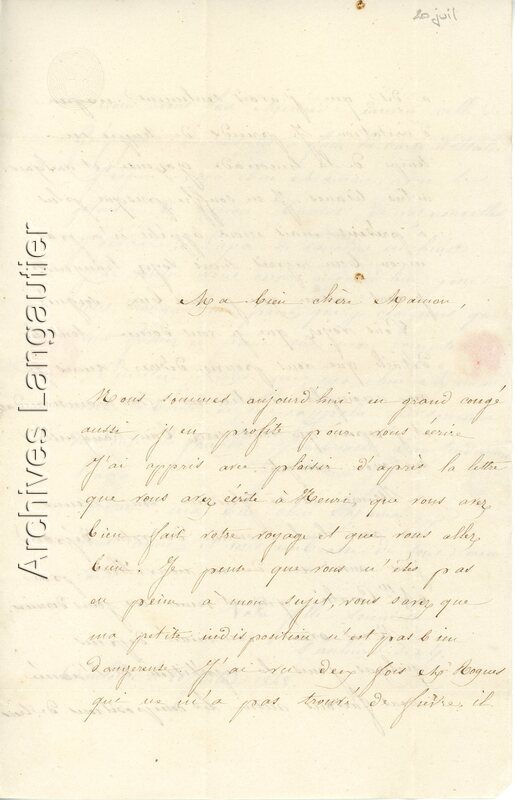 20 juil
Ma bien chère Maman,
Nous sommes aujourd'hui en grand congé
aussi, j'en profite pour vous écrire
J'ai appris avec plaisir d'après la lettre
que vous avez écrite à Henri, que vous avez
bien fait votre voyage et que vous allez
bien. Je pense que vous n'êtes pas
en peine à mon sujet, vous savez que
ma petite indisposition n'est pas bien
dangereuse J'ai vu deux fois Mr Roques
qui ne m'a pas trouvé de fièvre, il
Archives Langautier